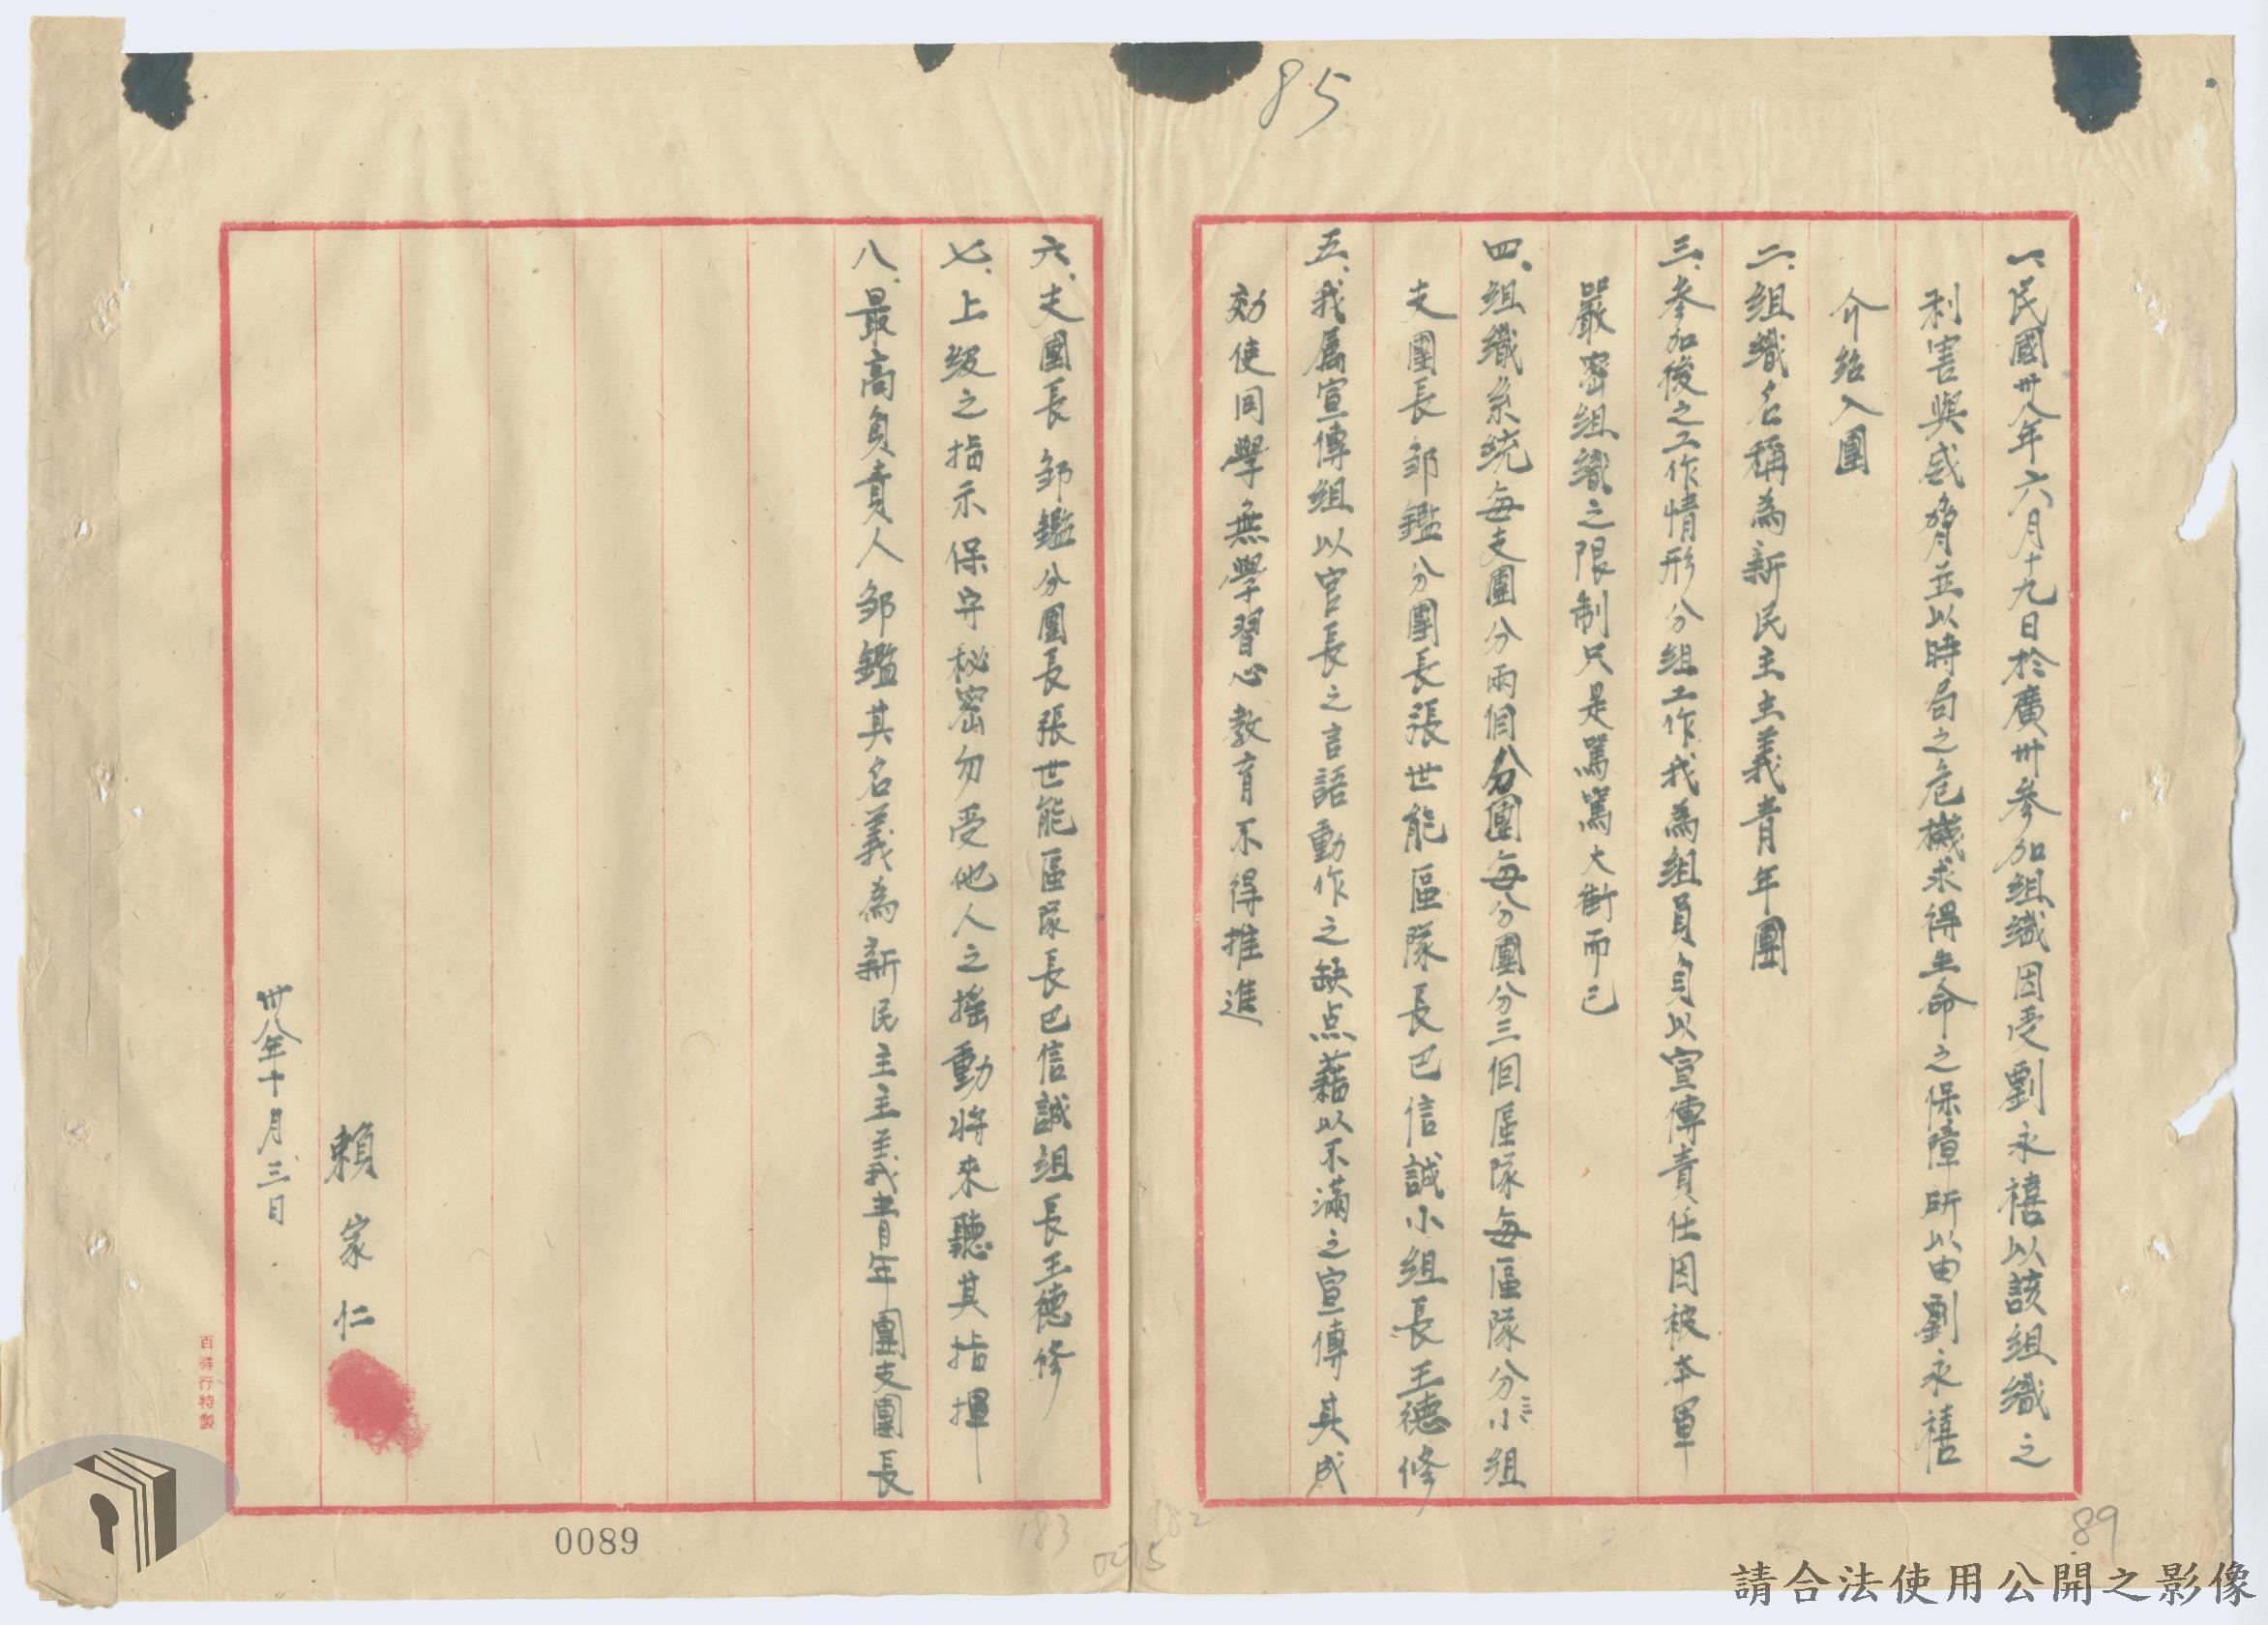 85
一、民國卅八年六月十九日於廣州參加組織因受劉永禧以該組織之
利害與威脅並以時局之危機求得生命之保障所以由劉永禧
介紹入團
二、組織名稱為新民主主義青年團
三、參加後之工作情形分組工作我為組員負以宣傳責任因被本軍
嚴密組織之限制只是罵罵大街而已
四、組織系統每支團分兩個分團每分團分三個區隊每區隊分三小組
支團長鄒鑑分團長張世能區隊長巴信誠小組長王德修
五、我屬宣傳組以官長之言語動作之缺点藉以不滿之宣傳其成
効使同學無學習心教育不得推進
六、支團長鄒鑑分團長張世能區隊長巴信誠組長王德修
七、上級之指示保守秘密勿受他人之搖動將來聽其指揮
八、最高負責人鄒鑑其名義為新民主主義青年團支團長
賴家仁
卅八年十月三日
百祥行特製
0089
183
182
0095
89
請合法使用公開之影像